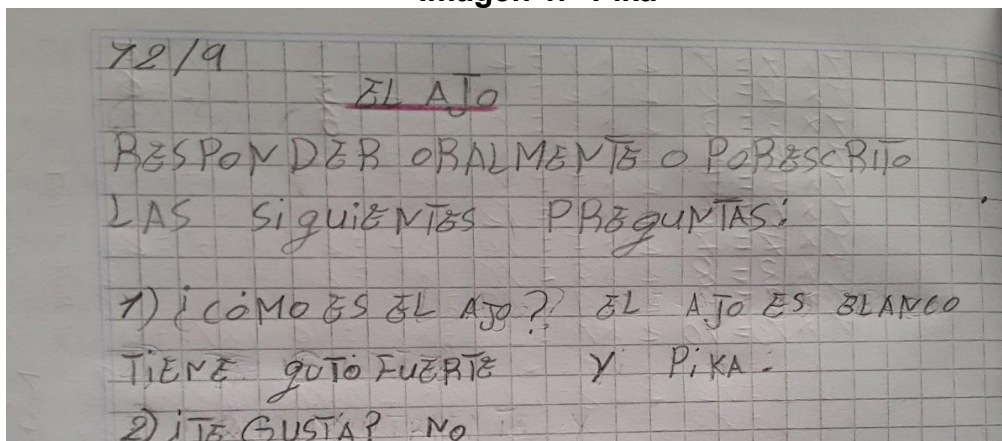 12/9
EL AJO
RESPONDER ORALMENTE O POR ESCRITO
LAS SiguiENTES PREgUNTAS:
1) ¿CÓMO ES EL AJO? EL AJO ES BLANCO
TiENE gUTO FUERTE Y PiKA.
2) ¿TE GUSTA? NO